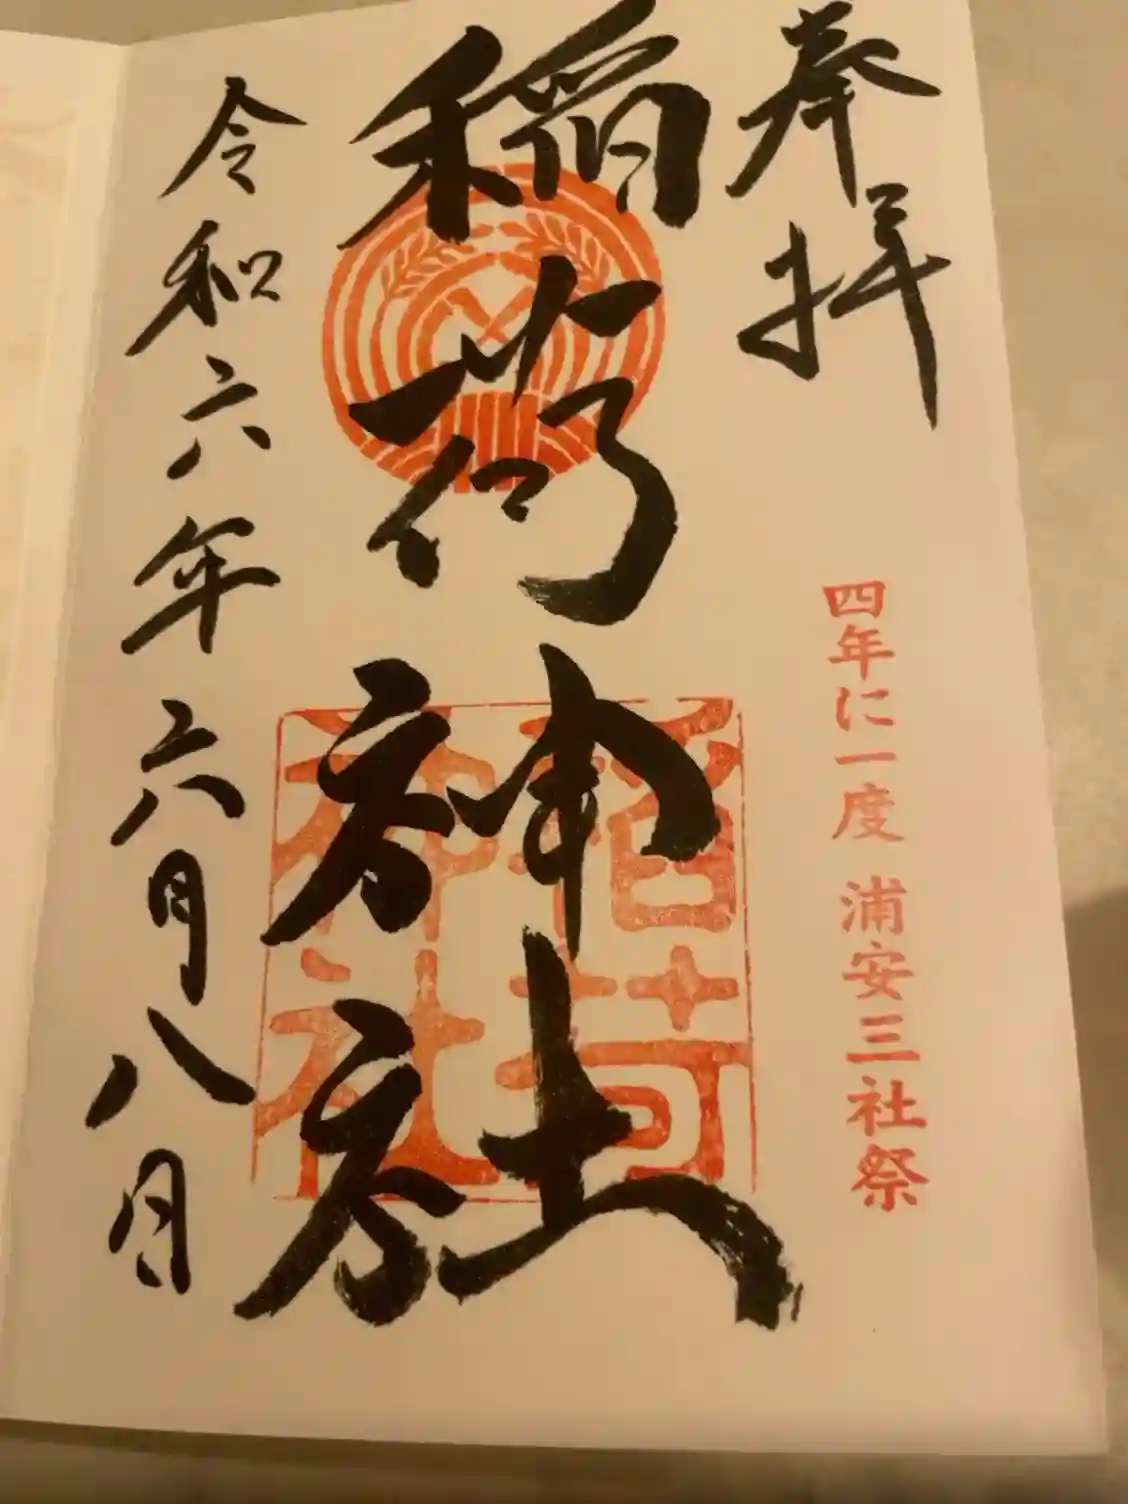 奉拝
四年に一度 浦安三社祭
稲荷神社
稲荷
神社
令和六年六月八日